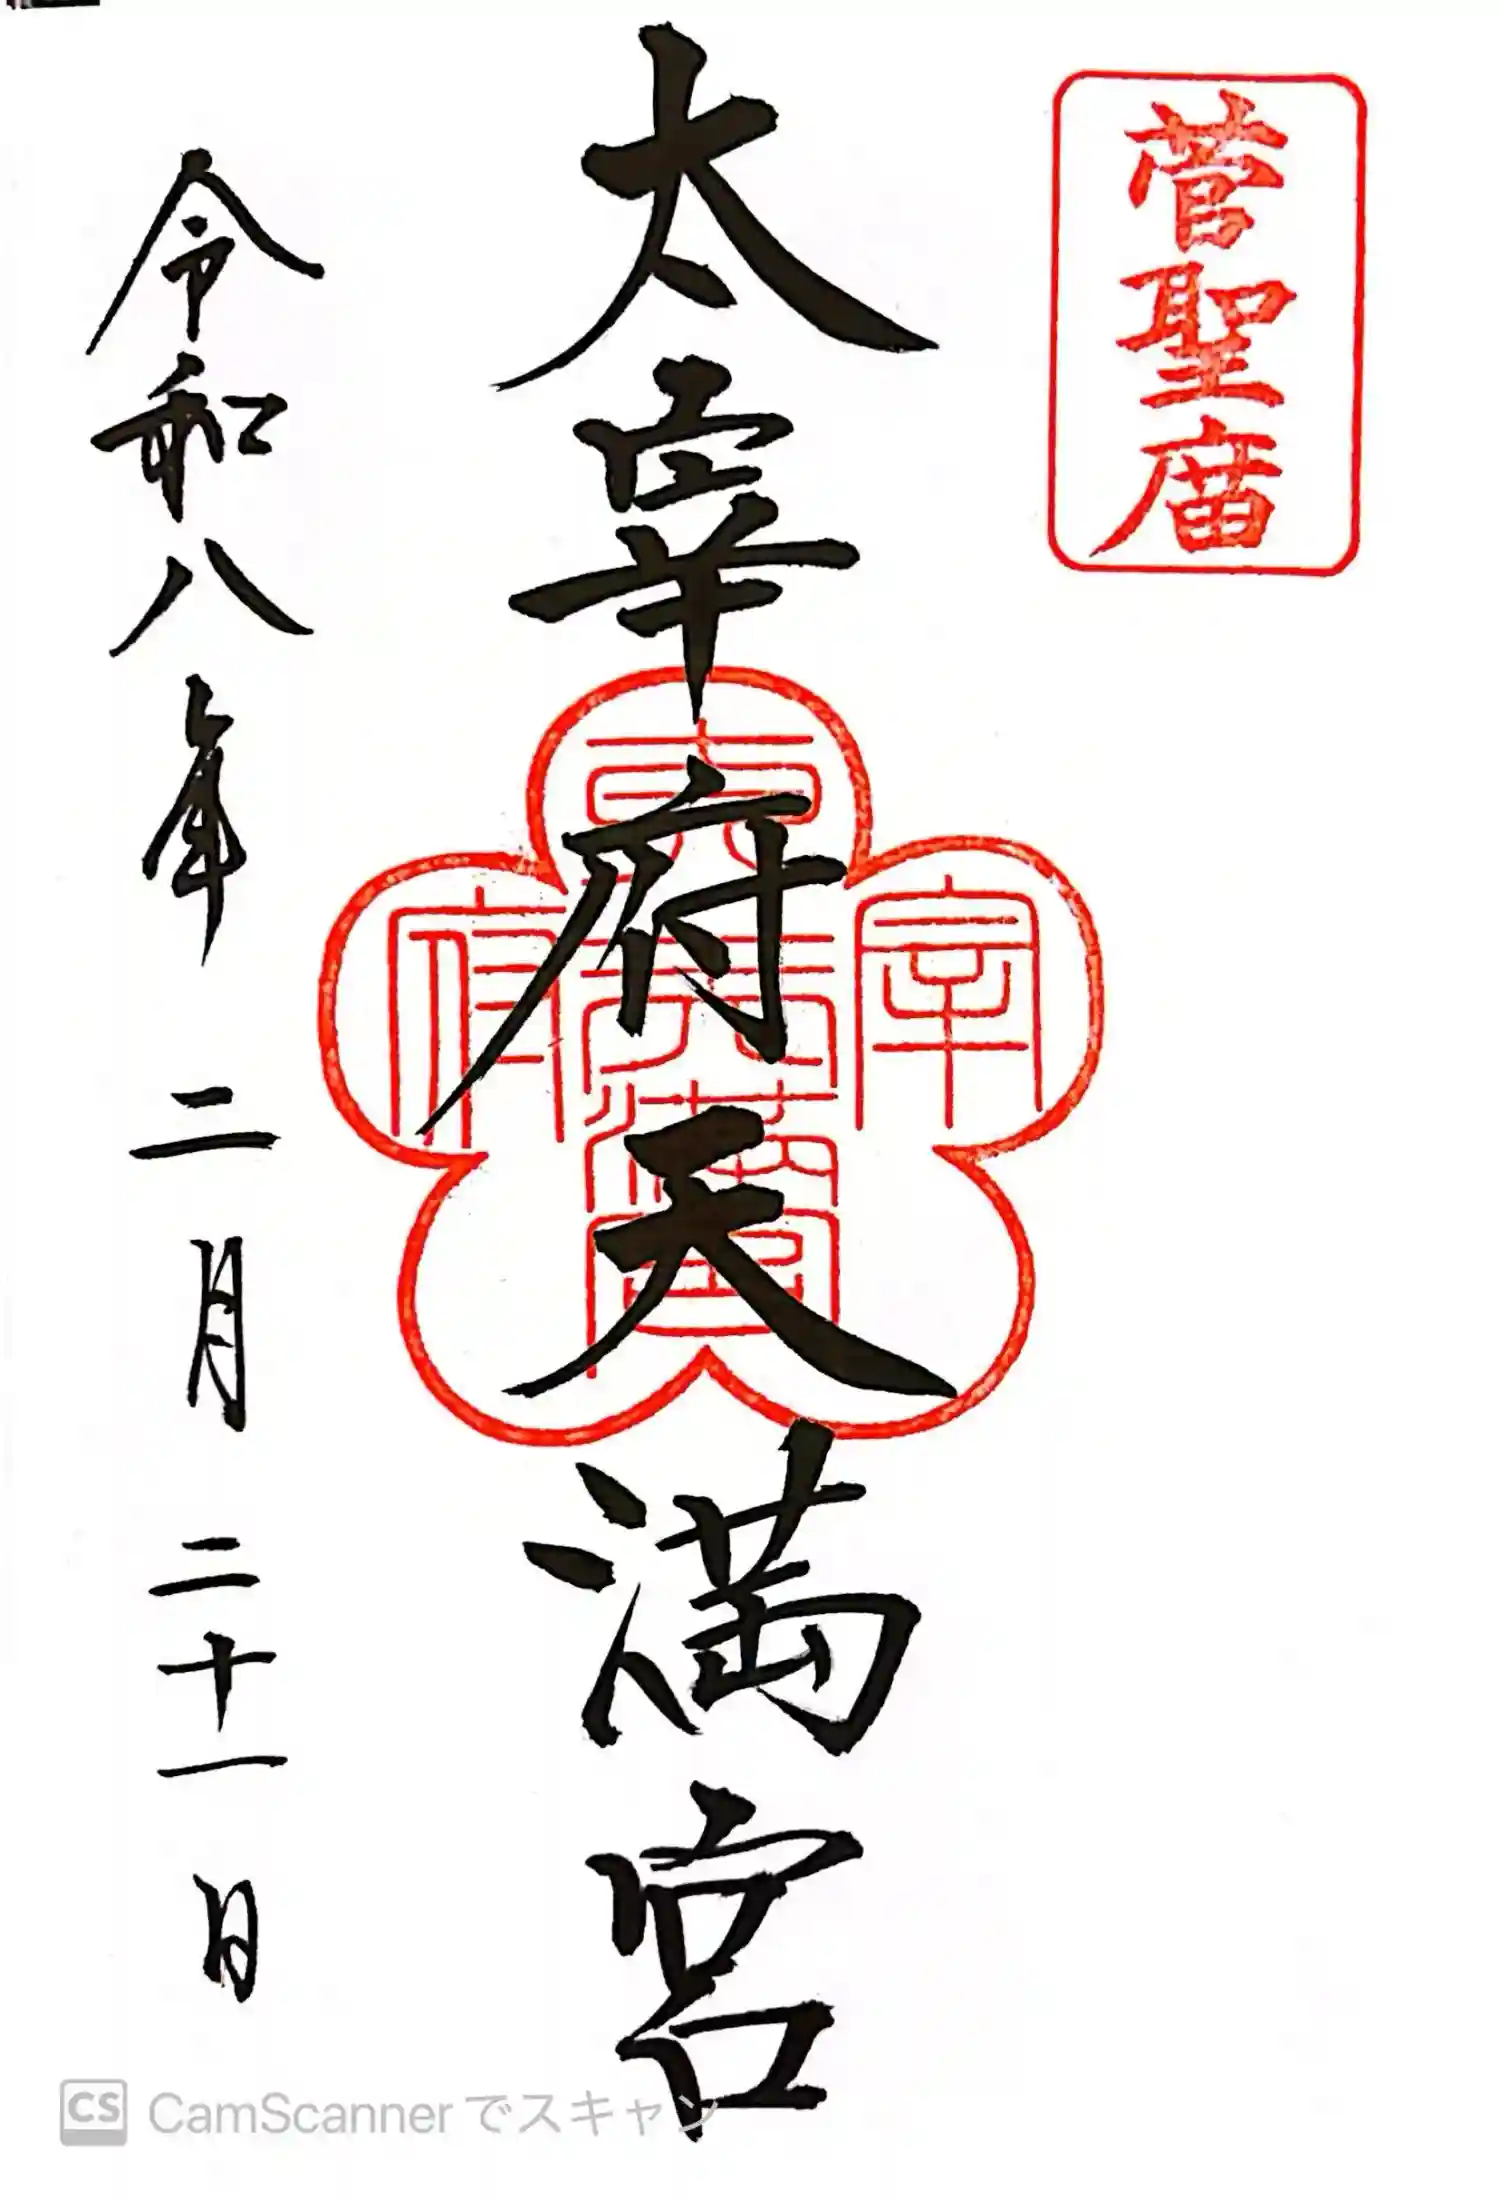 菅聖庿
太宰府天満宮
宰
府
天満宮
令和八年二月二十一日
CS CamScannerでスキャン